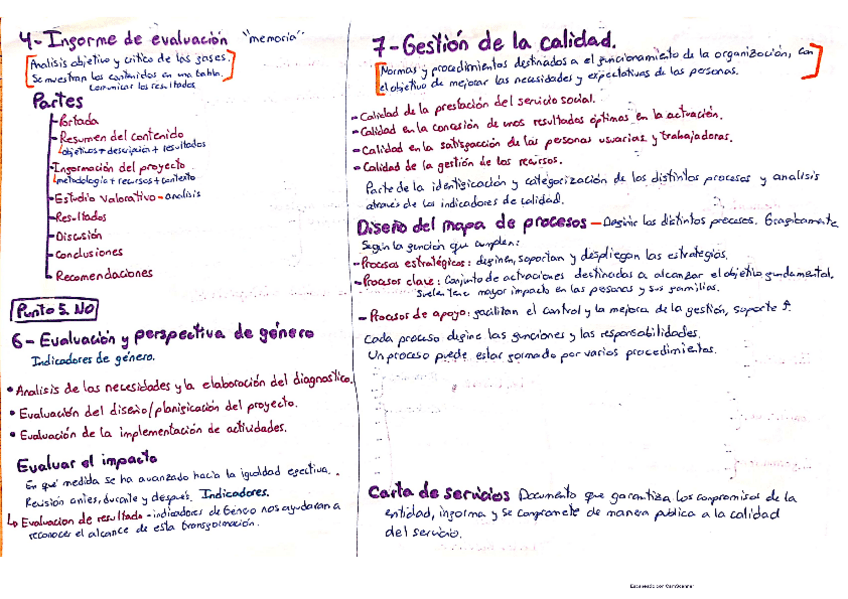 4- Informe de evaluación "memoria"
Analisis objetivo y critico de las fases.
Se muestran los contenidos en una tabla.
Comunicar los resultados
Partes
Portada
Resumen del contenido
objetivos + descripción + resultados
Información del proyecto
metodologia + recursos + contexto
Estudio valorativo - analisis
Resultados
Discusión
Conclusiones
Recomendaciones
Punto 5. NO
6- Evaluación y perspectiva de género
Indicadores de género.
• Analisis de las necesidades y la elaboración del diagnostico.
• Evaluación del diseño/planificación del proyecto.
• Evaluación de la implementación de actividades.
Evaluar el impacto
En qué medida se ha avanzado hacia la igualdad efectiva.
Revisión antes, durante y después. Indicadores.
↳ Evaluacion de resultado - indicadores de Género nos ayudaran a
reconocer el alcance de esta transformación.
7- Gestión de la calidad.
Normas y procedimientos destinados a el funcionamiento de la organización, con
el objetivo de mejorar las necesidades y expectativas de las personas.
- Calidad de la prestación del servicio social.
- Calidad en la concesión de unos resultados óptimos en la actuación.
- Calidad en la satisfacción de las personas usuarias y trabajadoras.
- Calidad de la gestión de los recursos.
Parte de la identificación y categorización de los distintos procesos y analisis
atraves de los indicadores de calidad.
Diseño del mapa de procesos - Definir los distintos procesos. Graficamente
Según la función que cumplen:
- Procesos estratégicos: definen, soportan y despliegan las estrategias.
- Procesos clave: Conjunto de actuaciones destinados a alcanzar el objetivo fundamental.
Suelen tener mayor impacto en las personas y sus familias.
- Procesos de apoyo: facilitan el control y la mejora de la gestión, soporte ↑.
Cada proceso define las funciones y las responsabilidades.
Un proceso puede estar formado por varios procedimientos.
Carta de servicios Documento que garantiza los compromisos de la
entidad, informa y se compromete de manera publica a la calidad
del servicio.
Escaneado con CamScanner